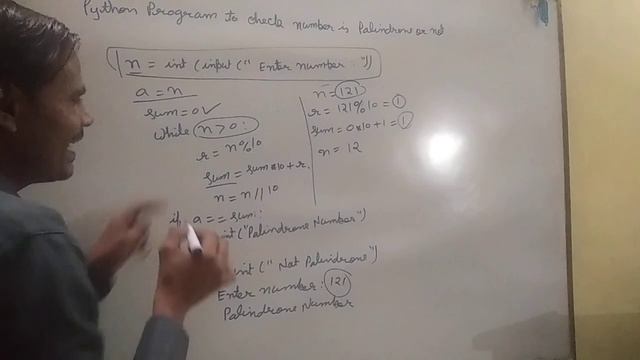 Python Program to check number is Palindrone or not
n = int (input (" Enter number : "))
a = n
sum = 0 ✓
while n > 0 :
r = n % 10
sum = sum * 10 + r
n = n // 10
if a == sum :
int ("Palindrone Number")
int (" Not Palindrone")
Enter number : 121
Palindrone Number
n = 121
r = 121 % 10 = 1
sum = 0 * 10 + 1 = 1
n = 12